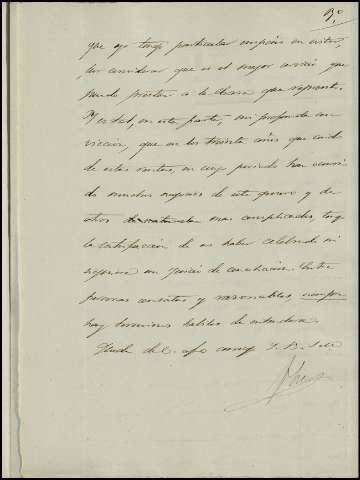 3º
que yo tengo particular empeño en evitar,
por considerar que es el mejor servicio que
puedo prestar a la Casa que represento.
Y es tal, en esta parte, mi profunda con
vicción, que en los treinta años que cuido
de estas rentas, en cuyo periodo han ocurri
do muchos negocios de este genero y de
otros mas complicados, tengo
la satisfacción de no haber celebrado ni
siquiera un juicio de conciliación. Entre
personas cristianas y razonables, siempre
hay terminos habiles de entenderse.
Queda de V. afmo amigo S. S. Q. B. S. M.